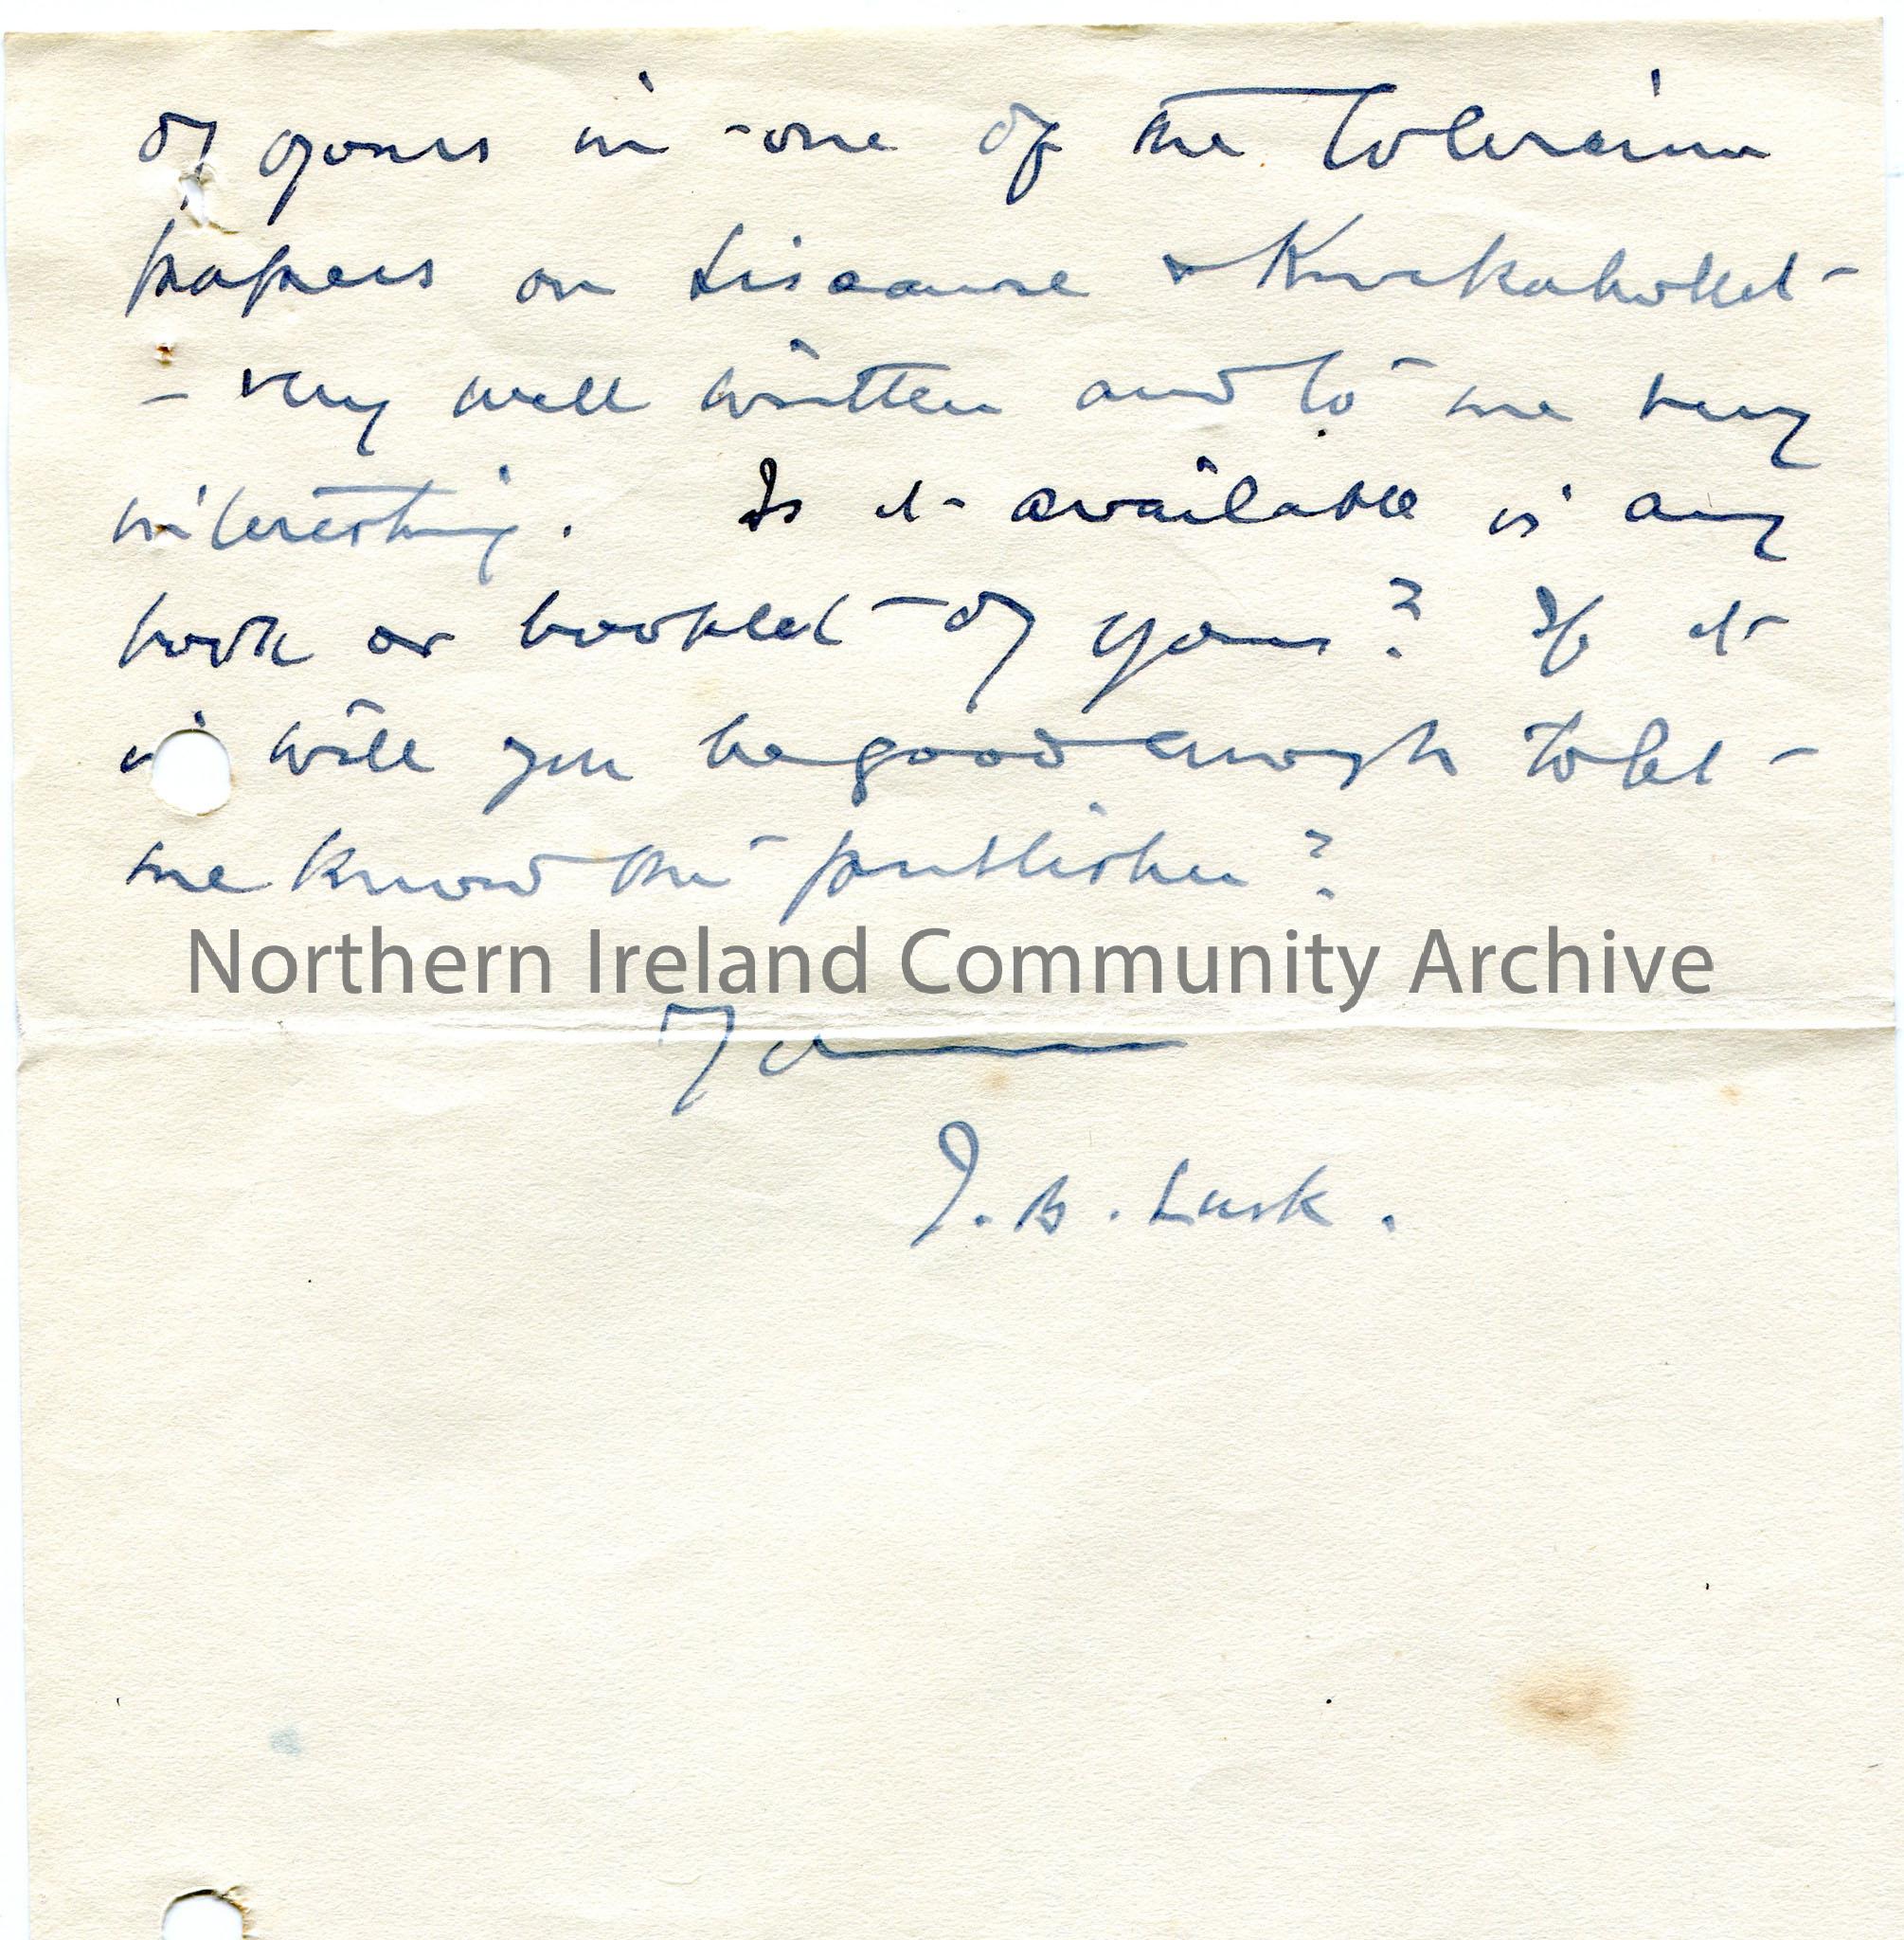 of yours in one of the Coleraine
papers on Liscaune & Knockaholet -
- very well written and to me very
interesting. Is it available in any
book or booklet of yours? If it
is will you be good enough to let
me know the publisher?
Northern Ireland Community Archive
Yours
J. B. Lusk.